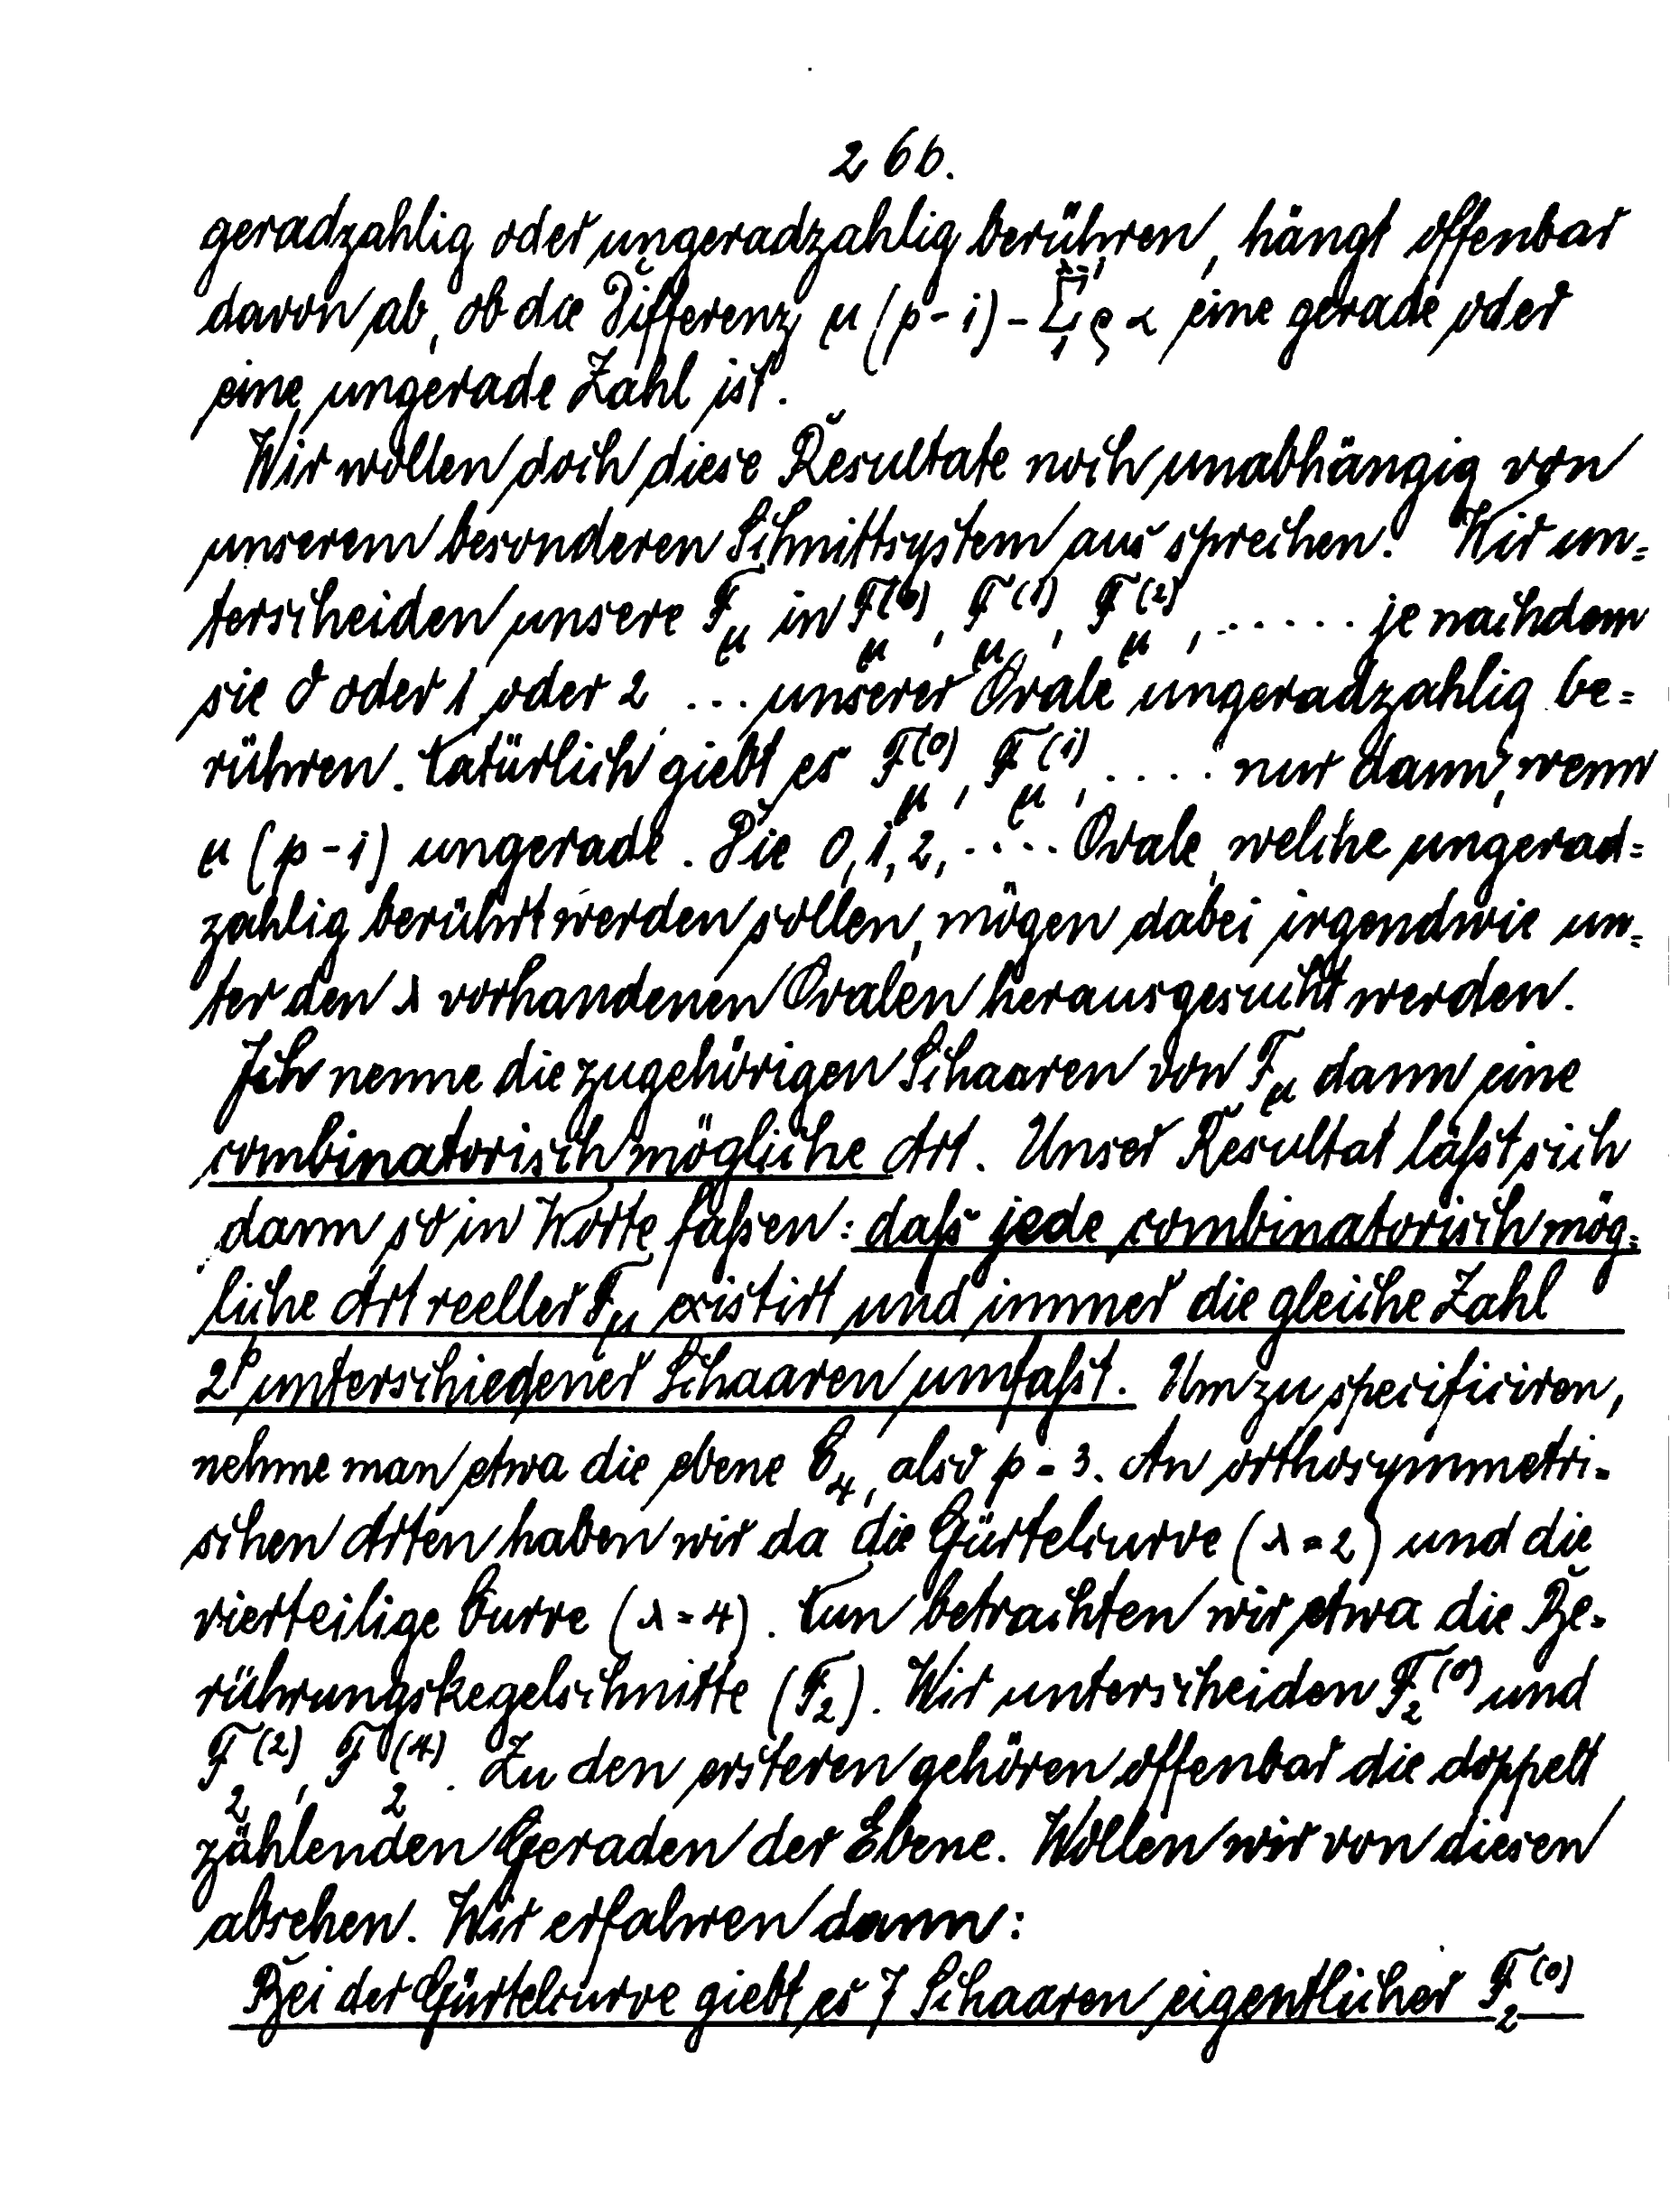 266.
geradzahlig oder ungeradzahlig berühren, hängt offenbar
davon ab, ob die Differenz μ(p-1) - Σ₁^{λ-1} ϱα eine gerade oder
eine ungerade Zahl ist.
Wir wollen doch diese Resultate noch unabhängig von
unserem besonderen Schnittsystem aussprechen. Wir un=
terscheiden unsere F_μ in F_μ^(0), F_μ^(1), F_μ^(2), ..... je nachdem
sie 0 oder 1 oder 2 ... unserer Ovale ungeradzahlig be=
rühren. Natürlich giebt es F_μ^(0), F_μ^(1), .... nur dann, wenn
μ(p-1) ungerade. Die 0, 1, 2, .... Ovale, welche ungerad=
zahlig berührt werden sollen, mögen dabei irgendwie un=
ter den λ vorhandenen Ovalen herausgesucht werden.
Ich nenne die zugehörigen Schaaren von F_μ dann eine
combinatorisch mögliche Art. Unser Resultat läßt sich
dann so in Worte faßen: daß jede combinatorisch mög=
liche Art reeller F_μ existirt und immer die gleiche Zahl
2^p unterschiedener Schaaren umfaßt. Um zu specificiren,
nehme man etwa die ebene C₄, also p = 3. An orthosymmetri=
schen Arten haben wir da die Gürtelcurve (λ = 2) und die
vierteilige Curve (λ = 4). Nun betrachten wir etwa die Be=
rührungskegelschnitte (F₂). Wir unterscheiden F₂^(0) und
F₂^(2), F₂^(4). Zu den ersteren gehören offenbar die doppelt
zählenden Geraden der Ebene. Wollen wir von diesen
absehen. Wir erfahren dann:
Bei der Gürtelcurve giebt es 7 Schaaren eigentlicher F₂^(0)